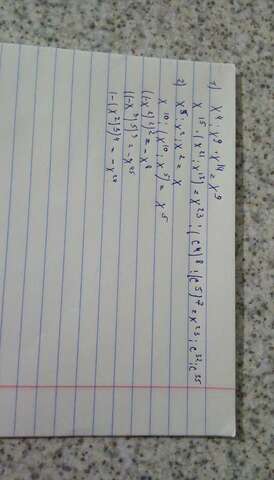 1) x⁴ : x⁹ · x¹⁴ = x⁹
x¹⁵ · (x²¹ : x¹³) = x²³ ; (c⁴)⁸ : (c⁵)⁷ = x²³ ; c³² : c³⁵
2) x⁵ : x² : x² = x
x¹⁰ : (x¹⁰ : x⁵) = x⁵
((-x⁴)²)² = -x⁸
((-x³)⁵)³ = -x⁴⁵
(-(x²)³)⁴ = -x²⁴